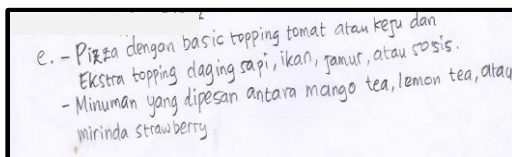 e. - Pizza dengan basic topping tomat atau keju dan
Ekstra topping daging sapi, ikan, jamur, atau sosis.
- Minuman yang dipesan antara mango tea, lemon tea, atau
mirinda strawberry